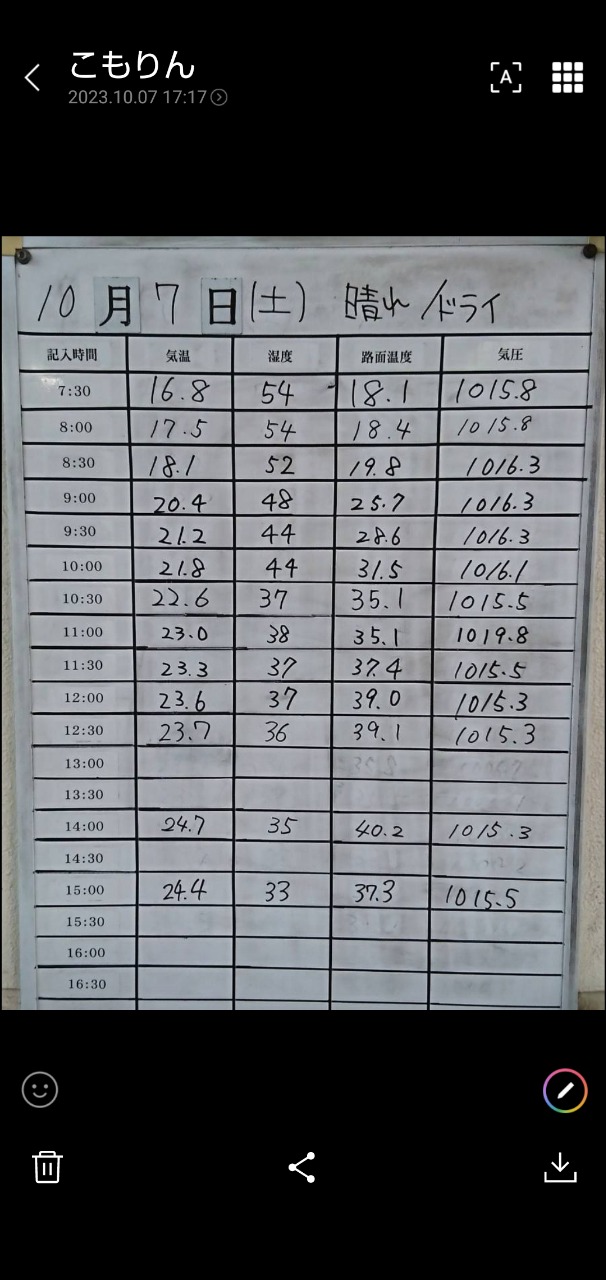 こもりん
2023.10.07 17:17
A
10月7日(土) 晴れ/ドライ
記入時間 気温 湿度 路面温度 気圧
7:30 16.8 54 18.1 1015.8
8:00 17.5 54 18.4 1015.8
8:30 18.1 52 19.8 1016.3
9:00 20.4 48 25.7 1016.3
9:30 21.2 44 28.6 1016.3
10:00 21.8 44 31.5 1016.1
10:30 22.6 37 35.1 1015.5
11:00 23.0 38 35.1 1019.8
11:30 23.3 37 37.4 1015.5
12:00 23.6 37 39.0 1015.3
12:30 23.7 36 39.1 1015.3
13:00
13:30
14:00 24.7 35 40.2 1015.3
14:30
15:00 24.4 33 37.3 1015.5
15:30
16:00
16:30